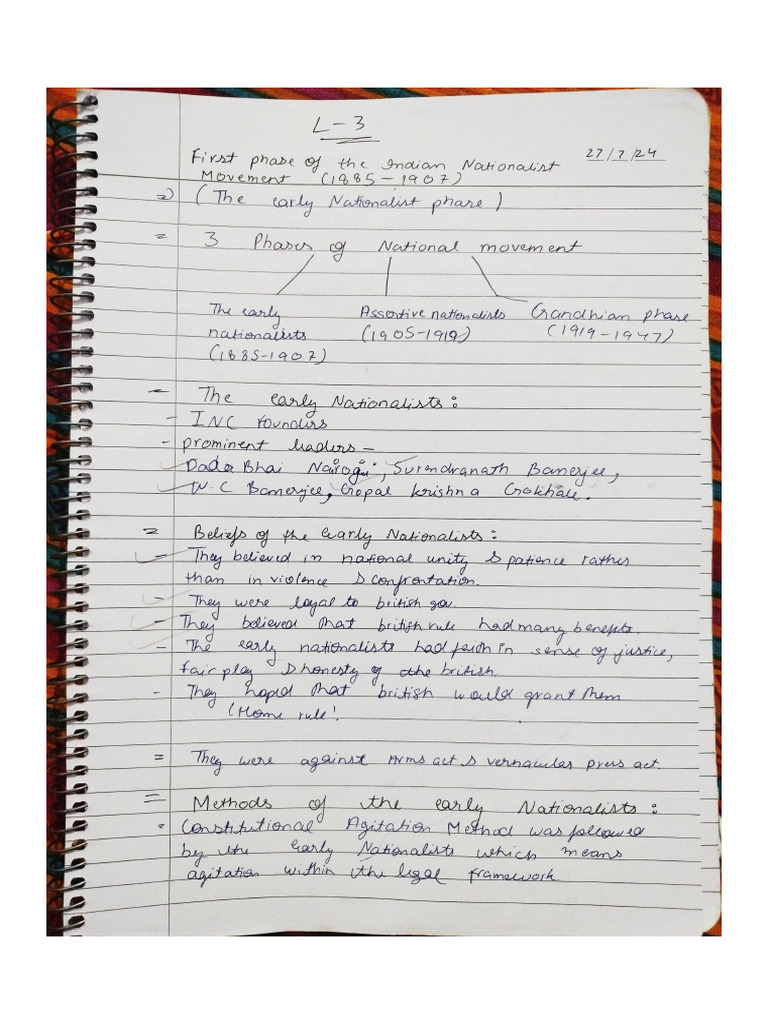 L-3
27/7/24
First phase of the Indian Nationalist
Movement (1885-1907)
=) (The early Nationalist phase)
= 3 Phases of National movement
The early Assertive nationalists Gandhian phase
nationalists (1905-1919) (1919-1947)
(1885-1907)
- The early Nationalists:
- INC founders
- prominent leaders -
Dada Bhai Naroji, Surendranath Banerjee,
W.C Banerjee, Gopal Krishna Gokhale.
= Beliefs of the Early Nationalists:
- They believed in national unity & patience rather
than in violence & confrontation.
- They were loyal to british gov.
- They believed that british rule had many benefits.
- The early nationalists had faith in sense of justice,
fair play & honesty of the british.
- They hoped that british would grant them
'Home rule'.
= They were against Arms act & vernacular press act.
= Methods of the early Nationalists:
- Constitutional Agitation Method was followed
by the Early Nationalists which means
agitation within the legal framework.